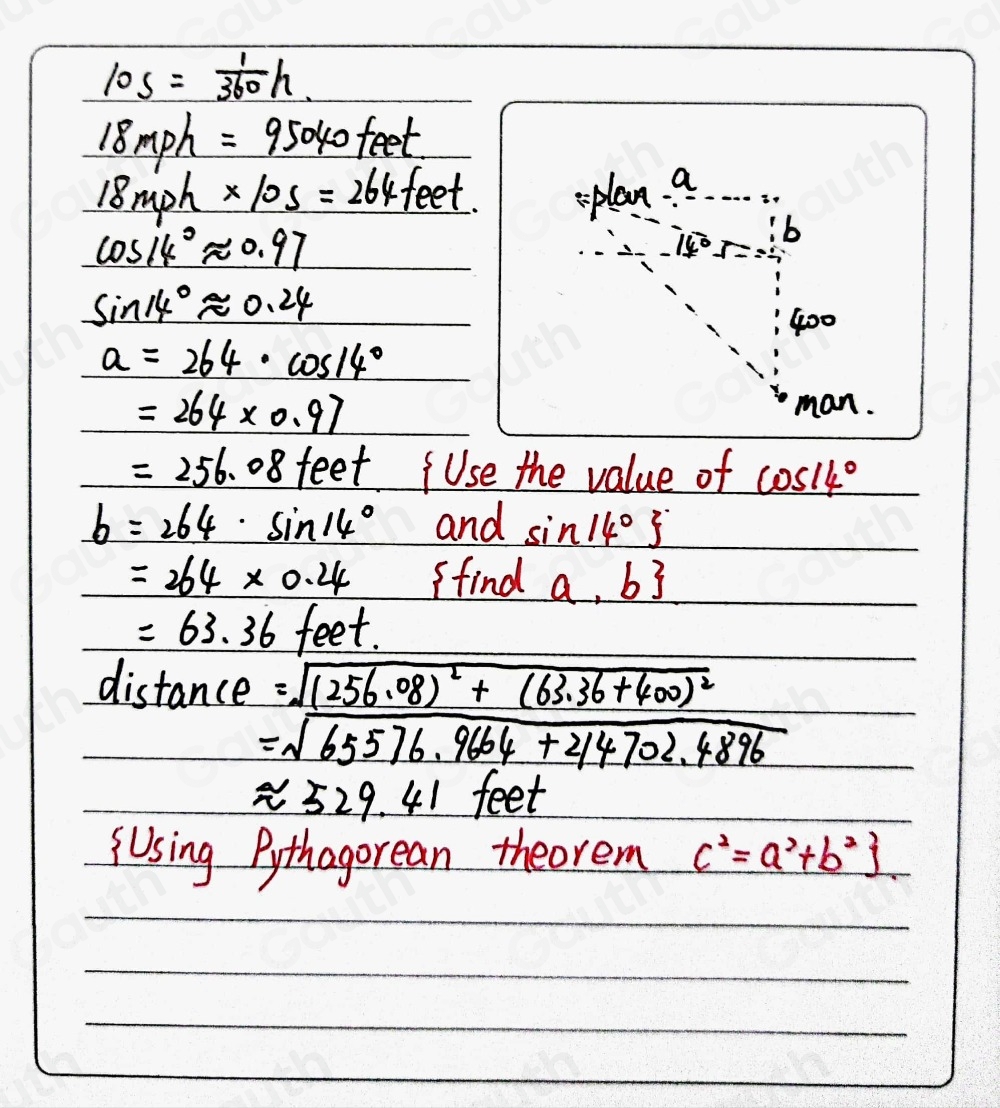 10s = 1/360 h.
18mph = 95040 feet.
18mph × 10s = 264 feet.
cos14° ≈ 0.97
sin14° ≈ 0.24
a = 264 · cos14°
= 264 × 0.97
= 256.08 feet {Use the value of cos14°
b = 264 · sin14° and sin14°}
= 264 × 0.24 {find a, b}
= 63.36 feet.
distance = √(256.08)² + (63.36+400)²
= √65576.9664 + 214702.4896
≈ 529.41 feet
{Using Pythagorean theorem c²=a²+b²}.
plan a
b
14°
400
man.
Gauth